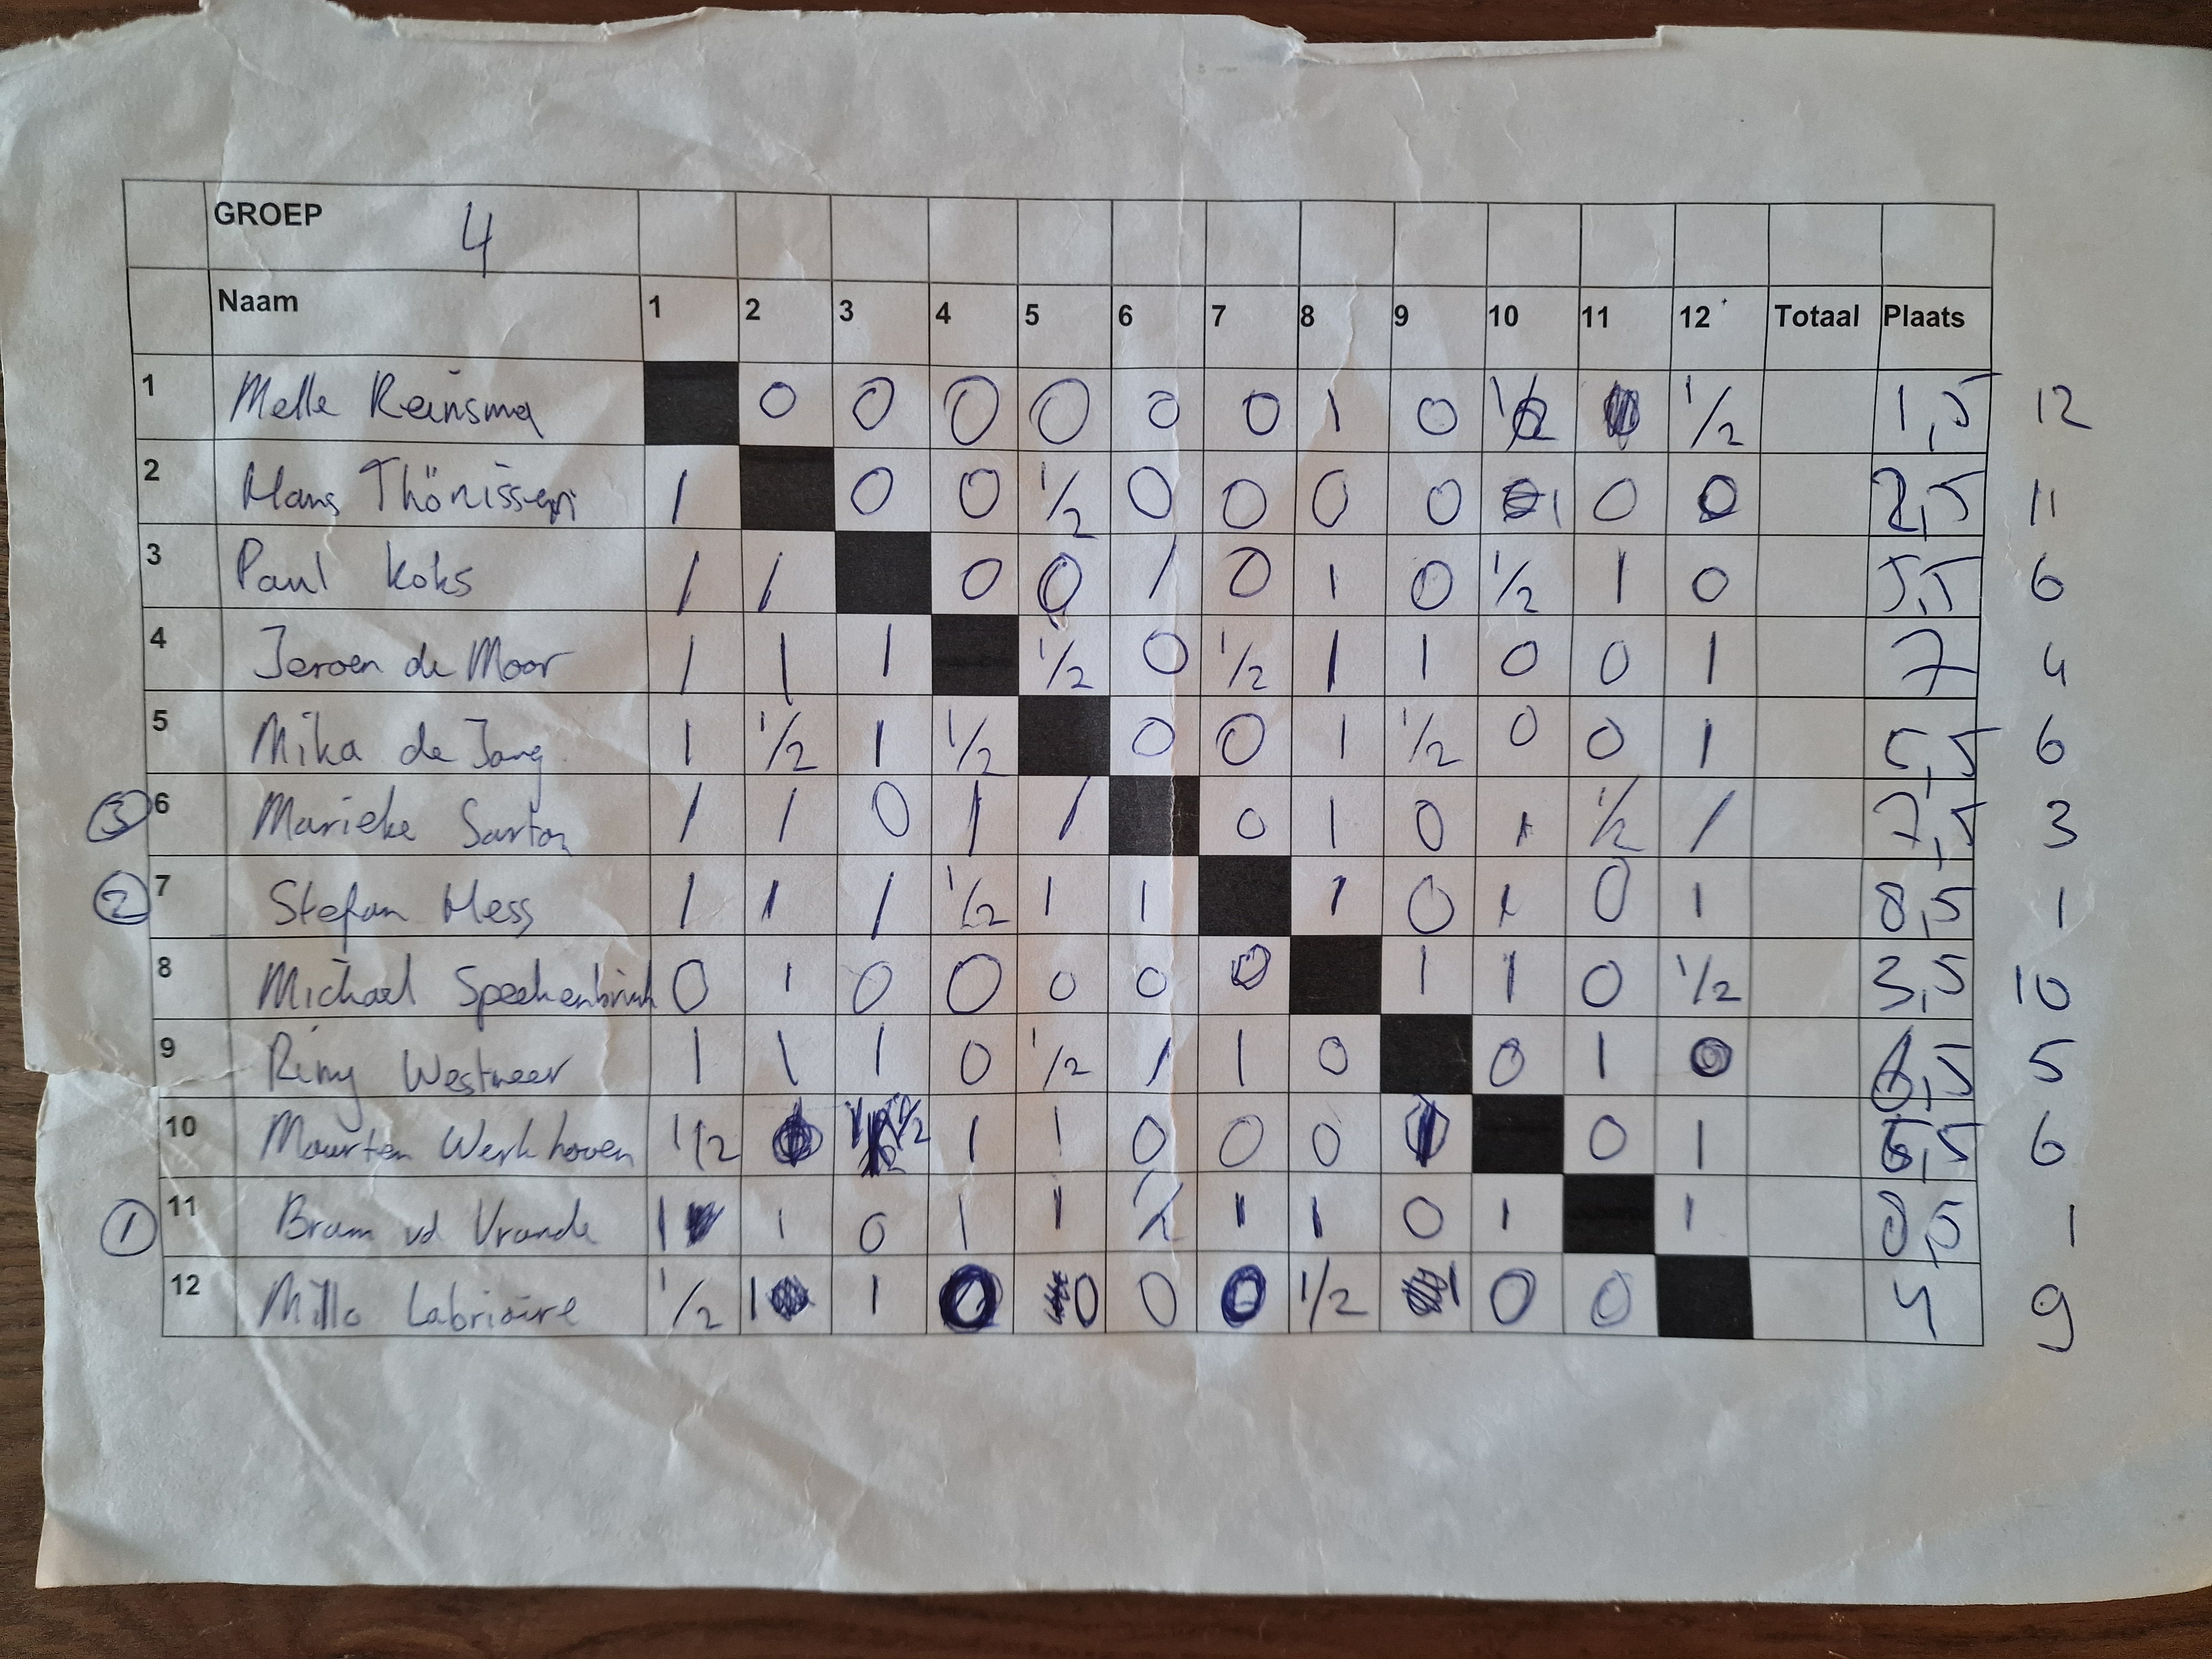 GROEP 4
Naam 1 2 3 4 5 6 7 8 9 10 11 12 Totaal Plaats
1 Melle Reinsma 0 0 0 0 0 0 1 0 1/2 1/2 1,5 12
2 Hans Thönissen 1 0 0 1/2 0 0 0 0 1 0 0 2,5 11
3 Paul Koks 1 1 0 0 1 0 1 0 1/2 1 0 5,5 6
4 Jeroen de Moor 1 1 1 1/2 0 1/2 1 1 0 0 1 7 4
5 Mika de Jong 1 1/2 1 1/2 0 0 1 1/2 0 0 1 5,5 6
3 6 Marieke Sarton 1 1 0 1 1 0 1 0 1 1/2 1 7,5 3
2 7 Stefan Hess 1 1 1 1/2 1 1 1 0 1 0 1 8,5 1
8 Michael 0 1 0 0 0 0 0 1 1 0 1/2 3,5 10
9 Westweer 1 1 1 0 1/2 1 1 0 0 1 0 6,5 5
10 Maarten Werkhoven 1/2 0 1/2 1 1 0 0 0 1 0 1 5,5 6
1 11 Bram vd Vrande 1 1 0 1 1 1/2 1 1 0 1 1 8,5 1
12 1/2 1 1 0 0 0 0 1/2 1 0 0 4 9